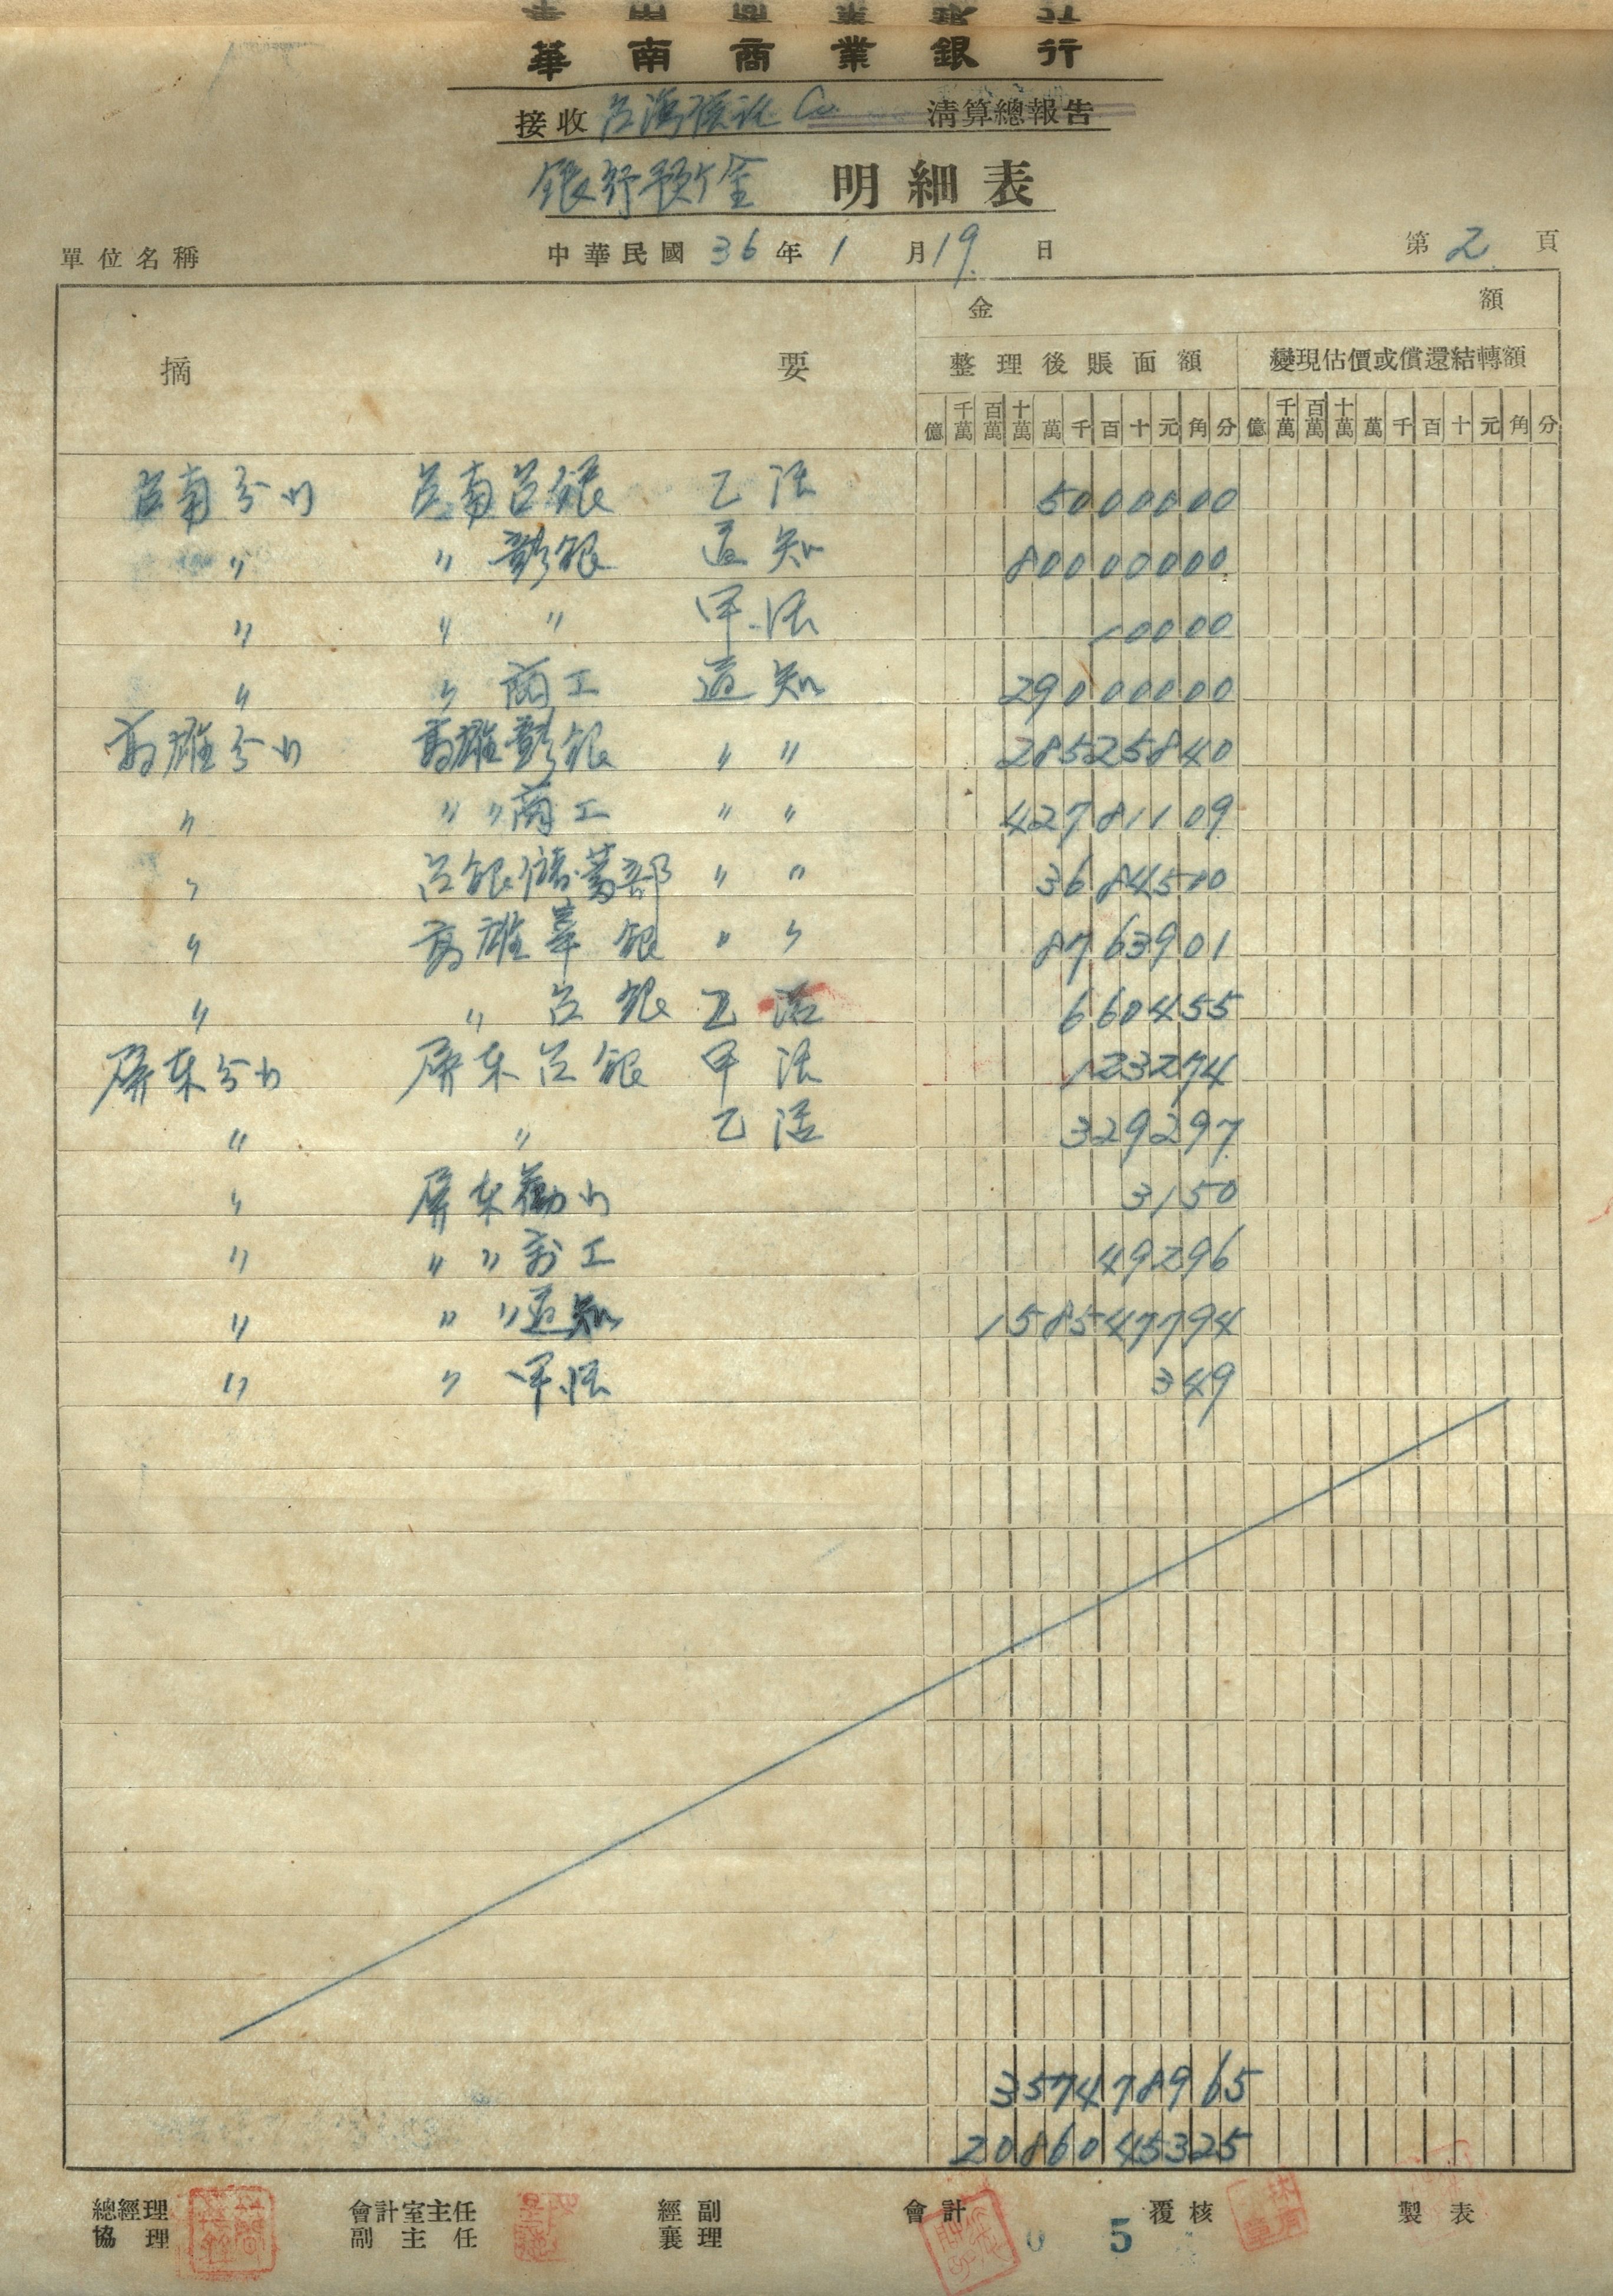 華南商業銀行
接收 台灣信託 Co. 清算總報告
銀行預金 明細表
單位名稱 中華民國 36 年 1 月 19 日 第 2 頁
金額
摘要 整理後賬面額 變現估價或償還結轉額
億 千萬 百萬 十萬 萬 千 百 十 元 角 分 億 千萬 百萬 十萬 萬 千 百 十 元 角 分
台南分行 台南台銀 乙活 5000000
〃 〃 彰銀 通知 80000000
〃 〃 〃 甲活 10000
〃 〃 商工 通知 29000000
高雄分行 高雄彰銀 〃 〃 28525840
〃 〃 〃 商工 〃 〃 42781109
〃 台銀儲蓄部 〃 〃 3684500
〃 高雄華銀 〃 〃 8763901
〃 〃 台銀 乙活 660455
屏東分行 屏東台銀 甲活 123274
〃 〃 乙活 329297
〃 屏東勸行 3150
〃 〃 〃 商工 49296
〃 〃 〃 通知 158547794
〃 〃 甲活 349
357478965
2086045325
總經理 會計室主任 經副 會計 覆核 製表
協理 副主任 襄理
0 5